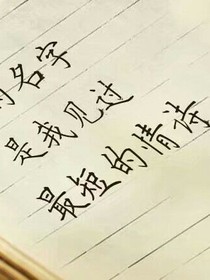 的名字
是我见过
最短的情诗